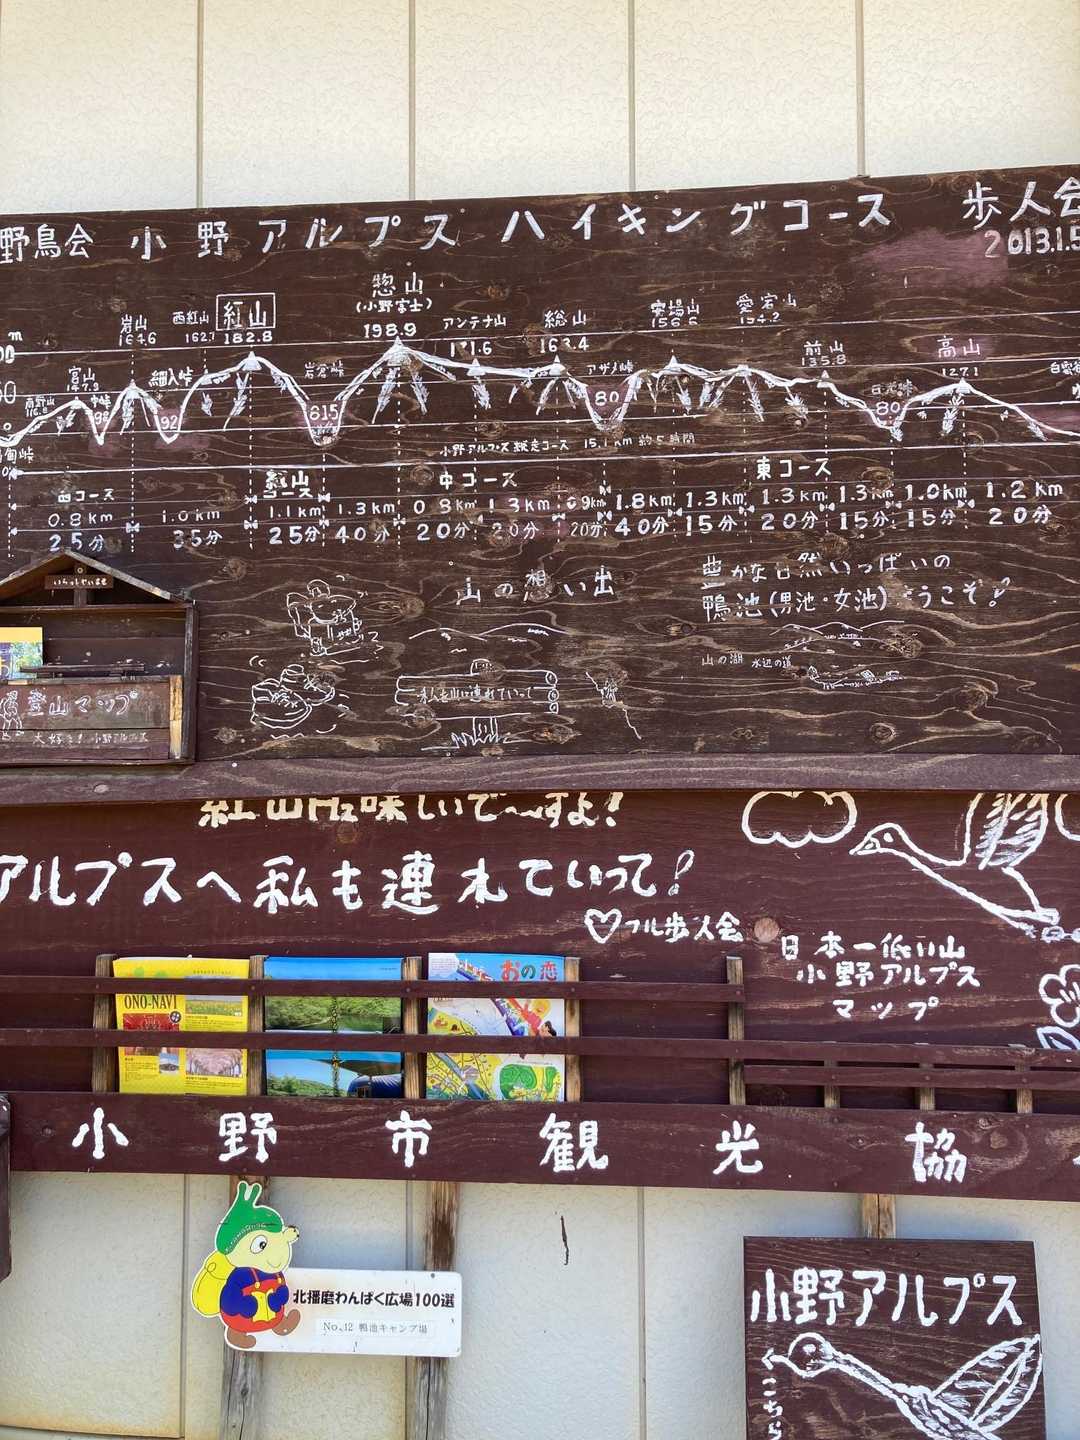 野鳥会 小野アルプスハイキングコース 歩人会
2013.1.5
惣山
(小野富士)
198.9
紅山
182.8
西紅山
162.7
岩山
164.6
アンテナ山
171.6
総山
163.4
実場山
156.6
愛宕山
154.2
前山
135.8
高山
127.1
宮山
147.9
高野山
116.8
中峠
98
細入峠
92
岩倉峠
815
アザメ峠
80
日光峠
80
白雲谷
小野アルプス縦走コース 15.1km 約5時間
西コース
紅山コース
中コース
東コース
0.8km 1.0km 1.1km 1.3km 0.8km 1.3km 0.9km 1.8km 1.3km 1.3km 1.3km 1.0km 1.2km
25分 35分 25分 40分 20分 20分 20分 40分 15分 20分 15分 15分 20分
いらっしゃいませ
登山マップ
大好き!小野アルプス
山の想い出
私も山に連れていって
豊かな自然いっぱいの
鴨池(男池・女池)ようこそ!
山の湖 水辺の道
紅山 味しいで〜すよ!
アルプスへ私も連れていって!
♡フル歩人会
日本一低い山
小野アルプス
マップ
ONO-NAVI
おの恋
小野市観光協
北播磨わんぱく広場100選
No.12 鴨池キャンプ場
小野アルプス
←こちら